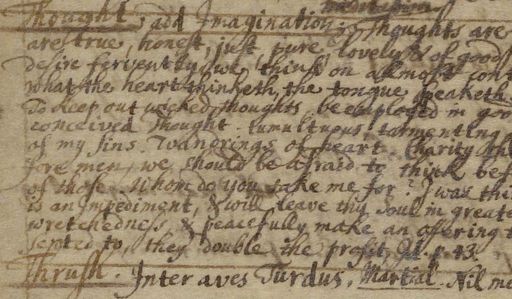 meditation
Thought, add Imagination; Thoughts are
are true, honest, just pure, lovely & of good
desire fervently, we think on almost cont
what the heart thinketh, the tongue speaketh.
To keep out wicked thoughts be employed in goo
conceived thought. tumultuous tormenting
of my sins. Wandrings of heart. Charity thi
fore men, we should be afraid to think bef
of those. Whom do you take me for? I was thi
is an impediment, & will leave thy soul in greate
wretchedness, & peacefully make an offering t
septed to, they double the profit, p. 43.
Thrush. Inter aves Turdus, Martial. Nil me